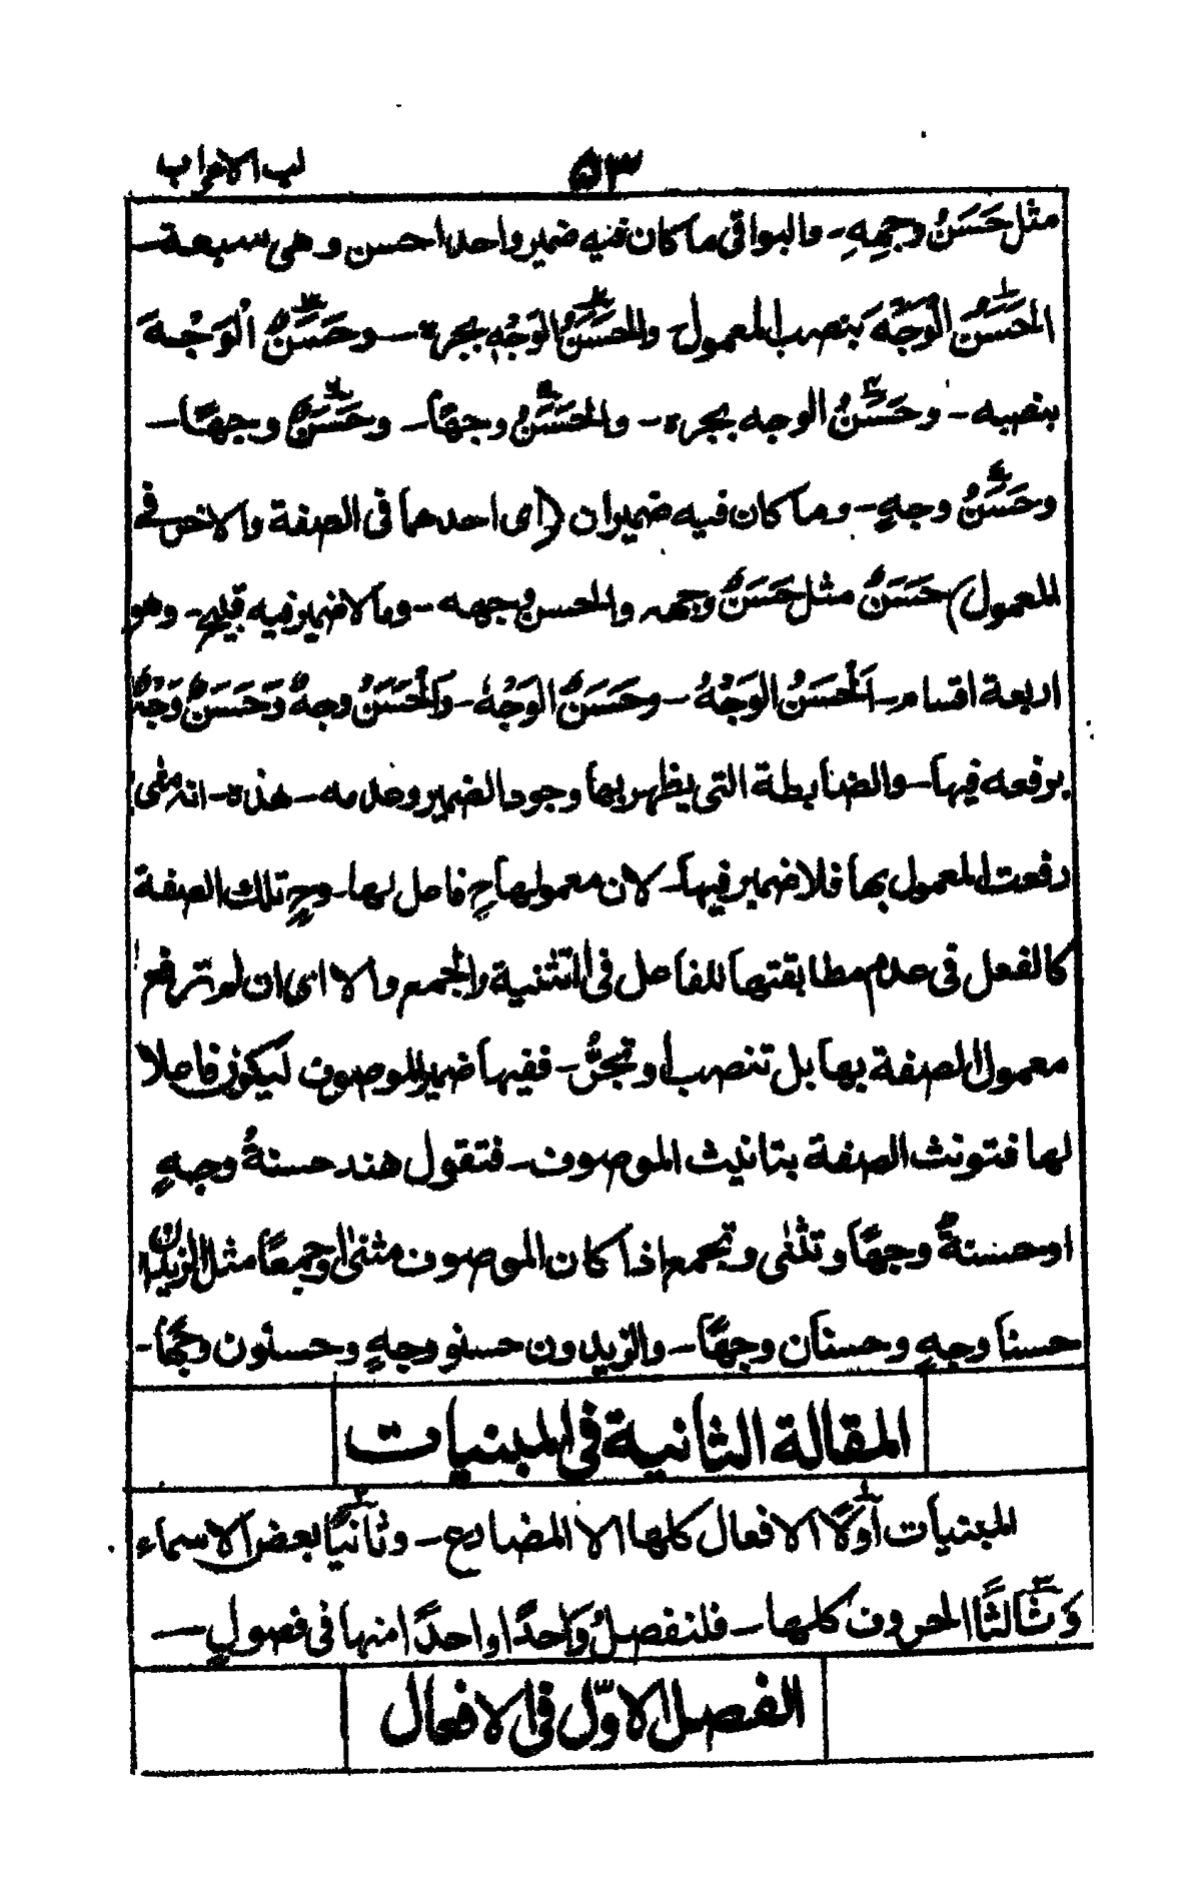 لب الاعراب ۵۳
مثل حَسَنُ وجهِهِ۔ والبواقی ماکان فیه ضمیر واحد احسن وهی سبعة۔
الحَسَنُ الْوَجْهَ بنصب المعمول۔ والحَسَنُ الوَجْهِ بجره۔ وحَسَنٌ الْوَجْهَ
بنصبه۔ وحَسَنُ الوجه بجره۔ والحَسَنُ وجهًا۔ وحَسَنٌ وجهًا۔
وحَسَنُ وجهٍ۔ وماکان فیه ضمیران (ای احدهما فی الصفة والاخر فی
المعمول) حَسَنٌ مثل حَسَنٌ وجهه والحسن وجهه۔ وما لا ضمیر فیه قبیح۔ وهو
اربعة اقسام۔ اَلْحَسَنُ الوَجْهُ۔ وحَسَنٌ الوَجْهُ۔ وَالْحَسَنُ وجهٌ وَحَسَنٌ وَجْهٌ
برفعه فیها۔ والضابطة التی یظهر بها وجود الضمیر وعدمه۔ هذه۔ انه متی
رفعت المعمول بها فلا ضمیر فیها۔ لان معمولها ح فاعل لها۔ وح تلك الصفة
کالفعل فی عدم مطابقتها للفاعل فی التثنیة والجمع والا ای ان لم ترفع
معمول الصفة بها بل تنصب او تجرُّ۔ ففیها ضمیر الموصوف لیکون فاعلا
لها فتونث الصفة بتانیث الموصوف۔ فتقول هند حسنةُ وجهٍ
او حسنةٌ وجهًا وتثنی وتجمع اذا کان الموصوف مثنیً او جمعًا مثل الزیدان
حسنا وجهٍ وحسنان وجهًا۔ والزیدون حسنو وجهٍ وحسنون وجهًا۔
المقالة الثانیة فی المبنیات
المبنیات اَوّلًا الافعال کلها الا المضارع۔ وثانیًا بعض الاسماء
وَثالثًا الحروف کلها۔ فلنفصل واحدًا واحدًا منها فی فصولٍ۔
الفصل الاوّل فی الافعال